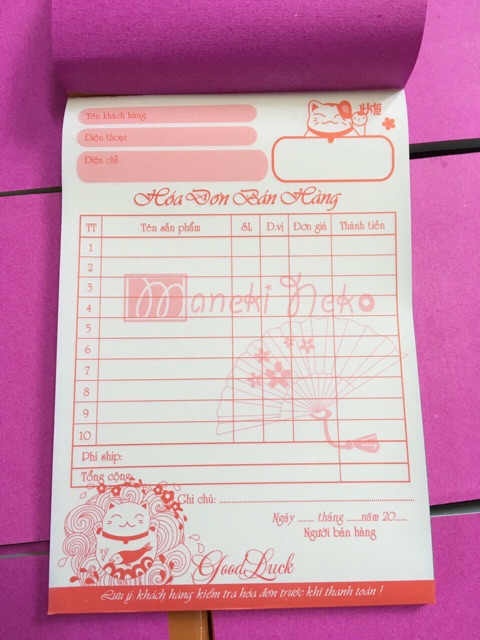 Tên khách hàng
Điện thoại:
Diện chỉ:
Hóa Đơn Bán Hàng
TT Tên sản phẩm SL Đ.vị Đơn giá Thành tiền
1
2
3
4
5
6
7
8
9
10
Maneki Neko
Phí ship:
Tổng cộng:
Ghi chú:
Ngày ...... tháng ......năm 20......
Người bán hàng
Good Luck
Lưu ý khách hàng kiểm tra hóa đơn trước khi thanh toán !